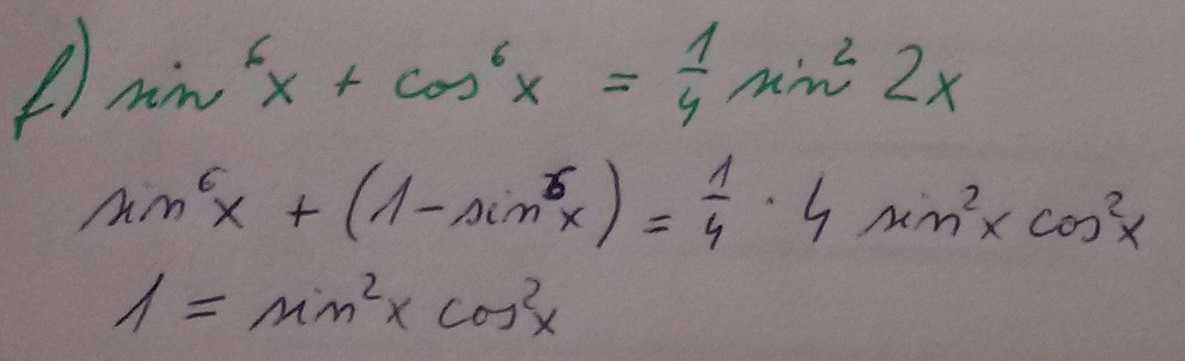 f) sin⁶x + cos⁶x = 1/4 sin² 2x
sin⁶x + (1 - sin⁶x) = 1/4 · 4 sin²x cos²x
1 = sin²x cos²x